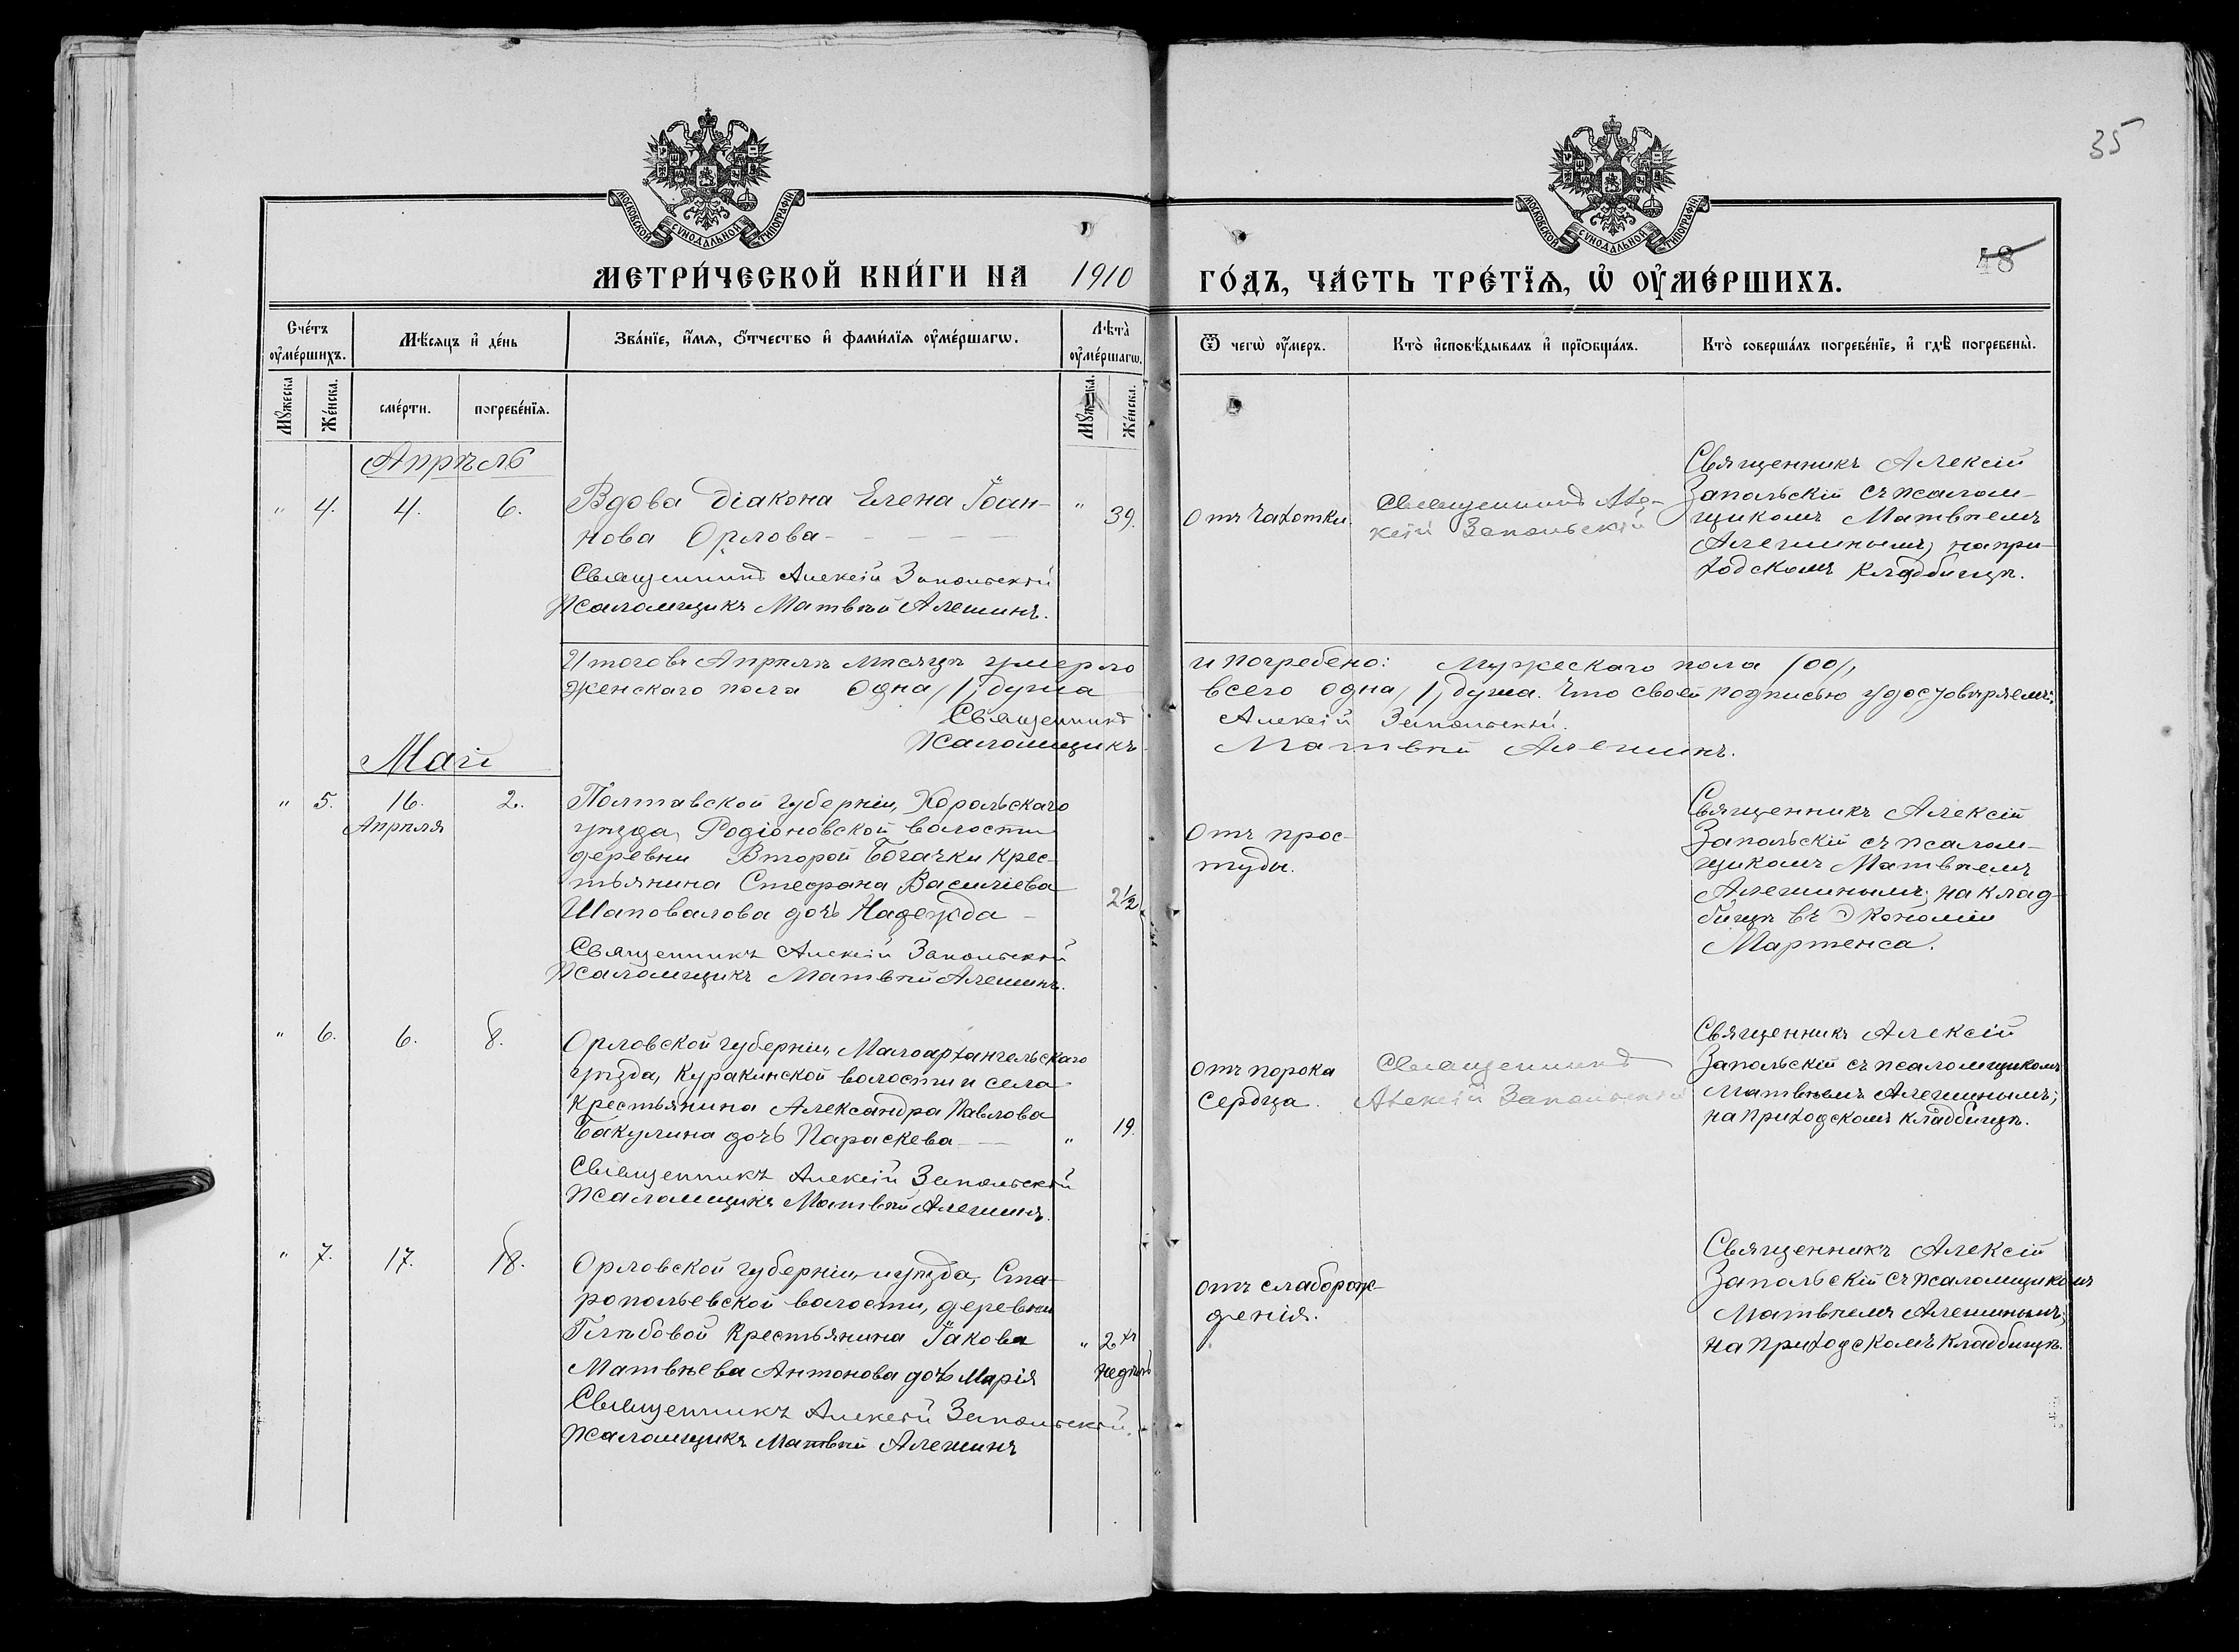 35
МОСКОВСКОЙ СѴНОДАЛЬНОЙ ТИПОГРАФІИ
МОСКОВСКОЙ СѴНОДАЛЬНОЙ ТИПОГРАФІИ
18
МЕТРИ́ЧЕСКОЙ КНИ́ГИ НА 1910 ГО́ДЪ, ЧА́СТЬ ТРЕ́ТЇѦ, Ѡ҆ ОУ҆МЕ́РШИХЪ.
Сче́тъ оу҆ме́ршихъ.
Мѣ́сяцъ и҆ де́нь
Зва́нїе, и҆́мѧ, ѻ҆́тчество и҆ фами́лїѧ оу҆ме́ршагѡ.
Лѣ́та оу҆ме́ршагѡ.
Ѿ чегѡ̀ оу҆́меръ.
Кто̀ и҆сповѣ́дывалъ и҆ прїѡбща́лъ.
Кто̀ соверша́лъ погребе́нїе, и҆ гдѣ̀ погребены̀.
Мꙋ́жеска
Же́нска.
сме́рти.
погребе́нїѧ.
Мꙋ́жеска.
Же́нска.
Апрѣль
" 4. 4. 6.
Вдова діакона Елена Іоан-
нова Орлова
Священникъ Алексій Запольскій
Псаломщикъ Матвѣй Алешинъ.
" 39.
Отъ чахотки.
Священникъ Але-
ксій Запольскій
Священникъ Алексій
Запольскій съ псалом-
щикомъ Матвѣемъ
Алешинымъ, на при-
ходскомъ кладбищѣ.
Итого въ Апрѣлѣ мѣсяцѣ умерло и погребено: Мужескаго пола /00/,
женскаго пола одна /1/ душа всего одна /1/ душа. Что своей подписью удостовѣряемъ:
Священникъ Алексій Запольскій.
Псаломщикъ Матвѣй Алешинъ.
Май
" 5. 16. Апрѣля 2.
Полтавской губерніи, Хорольскаго
уѣзда, Родіоновской волости
деревни Второй Богачки крес-
тьянина Стефана Василіева
Шаповалова дочь Надежда
Священникъ Алексій Запольскій
Псаломщикъ Матвѣй Алешинъ.
2½
Отъ прос-
туды.
Священникъ Алексій
Запольскій съ псалом-
щикомъ Матвѣемъ
Алешинымъ; на клад-
бищѣ въ Экономіи
Мартенса.
" 6. 6. 8.
Орловской губерніи, Малоархангельскаго
уѣзда, Куракинской волости и села
крестьянина Александра Павлова
Бакулина дочь Параскева
Священникъ Алексій Запольскій
Псаломщикъ Матвѣй Алешинъ.
" 19.
Отъ порока
сердца.
Священникъ
Алексій Запольскій
Священникъ Алексій
Запольскій съ псаломщикомъ
Матвѣемъ Алешинымъ;
на приходскомъ кладбищѣ.
" 7. 17. 18.
Орловской губерніи и уѣзда, Ста-
ропольевской волости, деревни
Глѣбовой крестьянина Іакова
Матвѣева Антонова дочь Марія
Священникъ Алексій Запольскій.
Псаломщикъ Матвѣй Алешинъ
" 2хъ
недѣль
отъ слаборож-
денія.
Священникъ Алексій
Запольскій съ псаломщикомъ
Матвѣемъ Алешинымъ;
на приходскомъ кладбищѣ.